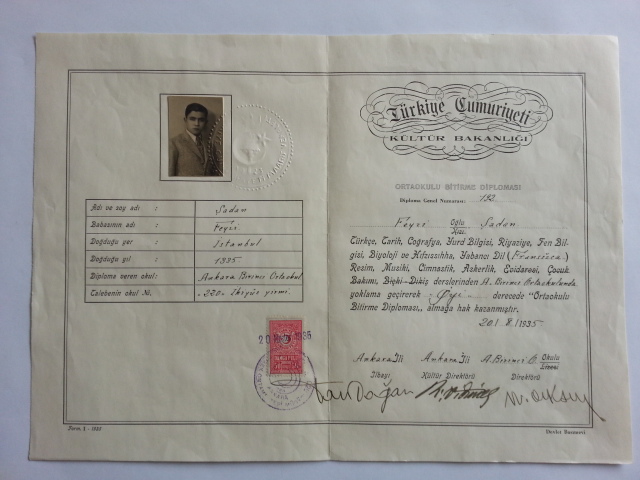 Adı ve soy adı :
Sadan
Babasının adı :
Feyzi
Doğduğu yer :
Istanbul
Doğduğu yıl :
1335
Diploma veren okul:
Ankara Birinci Ortaokul
Talebenin okul No. :
-220-
yirmi
1935
Devlet Basımevi
Türkiye Cumuriyeti
KÜLTÜR BAKANLIĞI
ORTAOKULU BİTİRME DİPLOMASI
Diploma Genel Numarası:
Feyzi Oğlu Kızı Sadan
Türkçe, Tarih, Coğrafya, Yurd Bilgisi, Riyaziye, Fen Bil-
gisi, Biyoloji ve Hıfzıssıhha, Yabancı Dil (Fransızca)
Resim, Musiki, Cimnastik, Askerlik, Evidaresi, Çocuk
Bakımı, Biçki-Dikiş derslerinden A. Birinci Ortaokulunda
yoklama geçirerek -Iyi- derecede "Ortaokulu
Bitirme Diploması,, almağa hak kazanmıştır.
1935
Ankara İli Ankara İli A. Birinci O. Okulu Lisesi
İlbayı Kültür Direktörü Direktörü